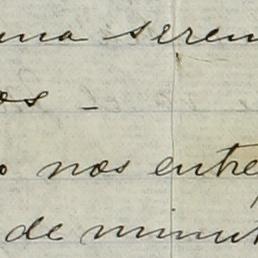 una seren
os -
o nos entre
de minut